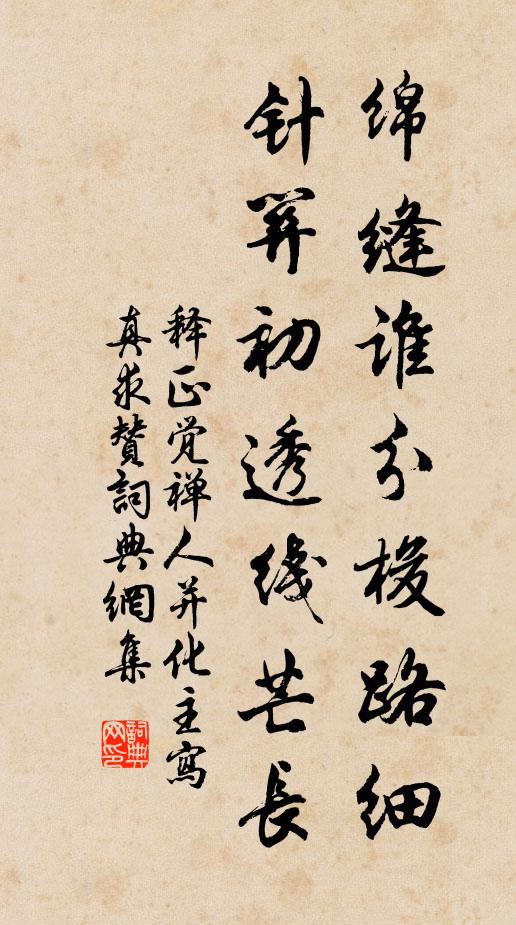 绵缝谁分梭路细
针羿初透线芒长
释正觉禅人并化主写
真求赞词典网集
詞典
网印